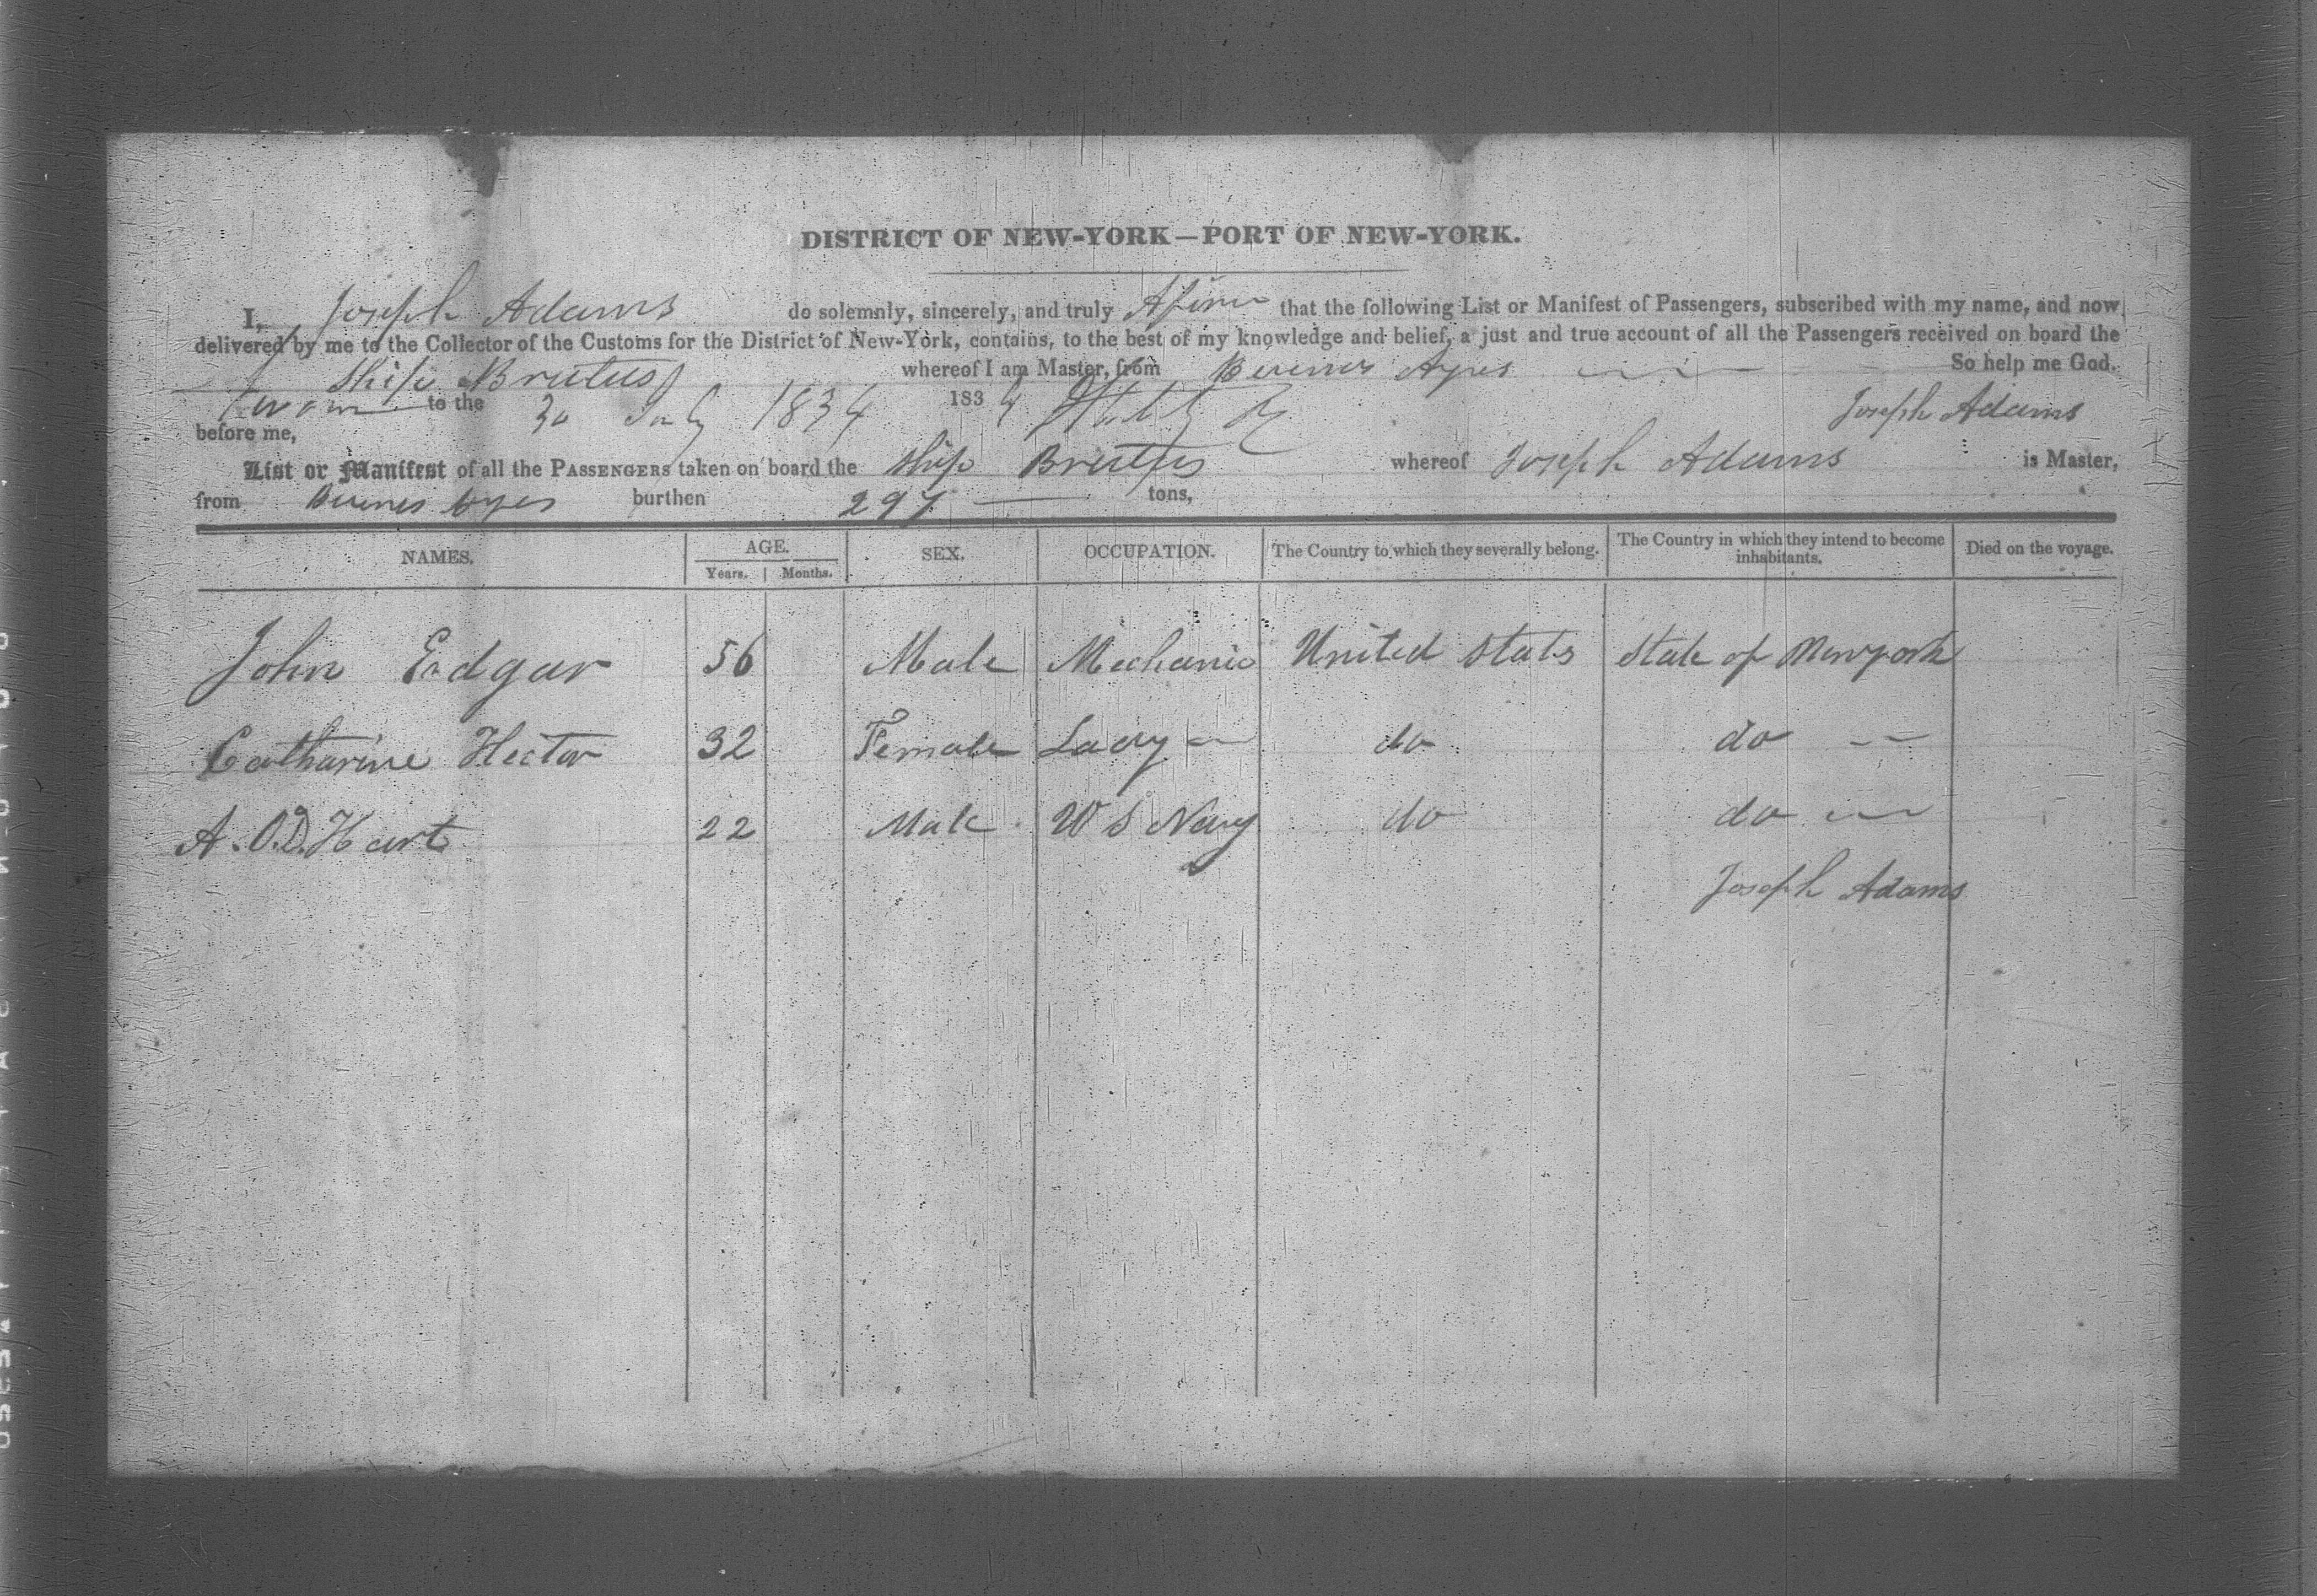 DISTRICT OF NEW-YORK—PORT OF NEW-YORK.
I, Joseph Adams do solemnly, sincerely, and truly Afirm that the following List or Manifest of Passengers, subscribed with my name, and now
delivered by me to the Collector of the Customs for the District of New-York, contains, to the best of my knowledge and belief, a just and true account of all the Passengers received on board the
Ship Brutus whereof I am Master, from Buenos Ayres So help me God.
Sworn to the 30 July 1834 1834 Joseph Adams
before me,
List or Manifest of all the PASSENGERS taken on board the Ship Brutus whereof Joseph Adams is Master,
from Buenos Ayres burthen 297 tons,
NAMES. AGE. SEX. OCCUPATION. The Country to which they severally belong. The Country in which they intend to become inhabitants. Died on the voyage.
Years. Months.
John Edgar 56 Male Mechanic United States State of Newyork
Catharine Hector 32 Female Lady do do
A. O.D. Hart 22 Male U S Navy do do
Joseph Adams